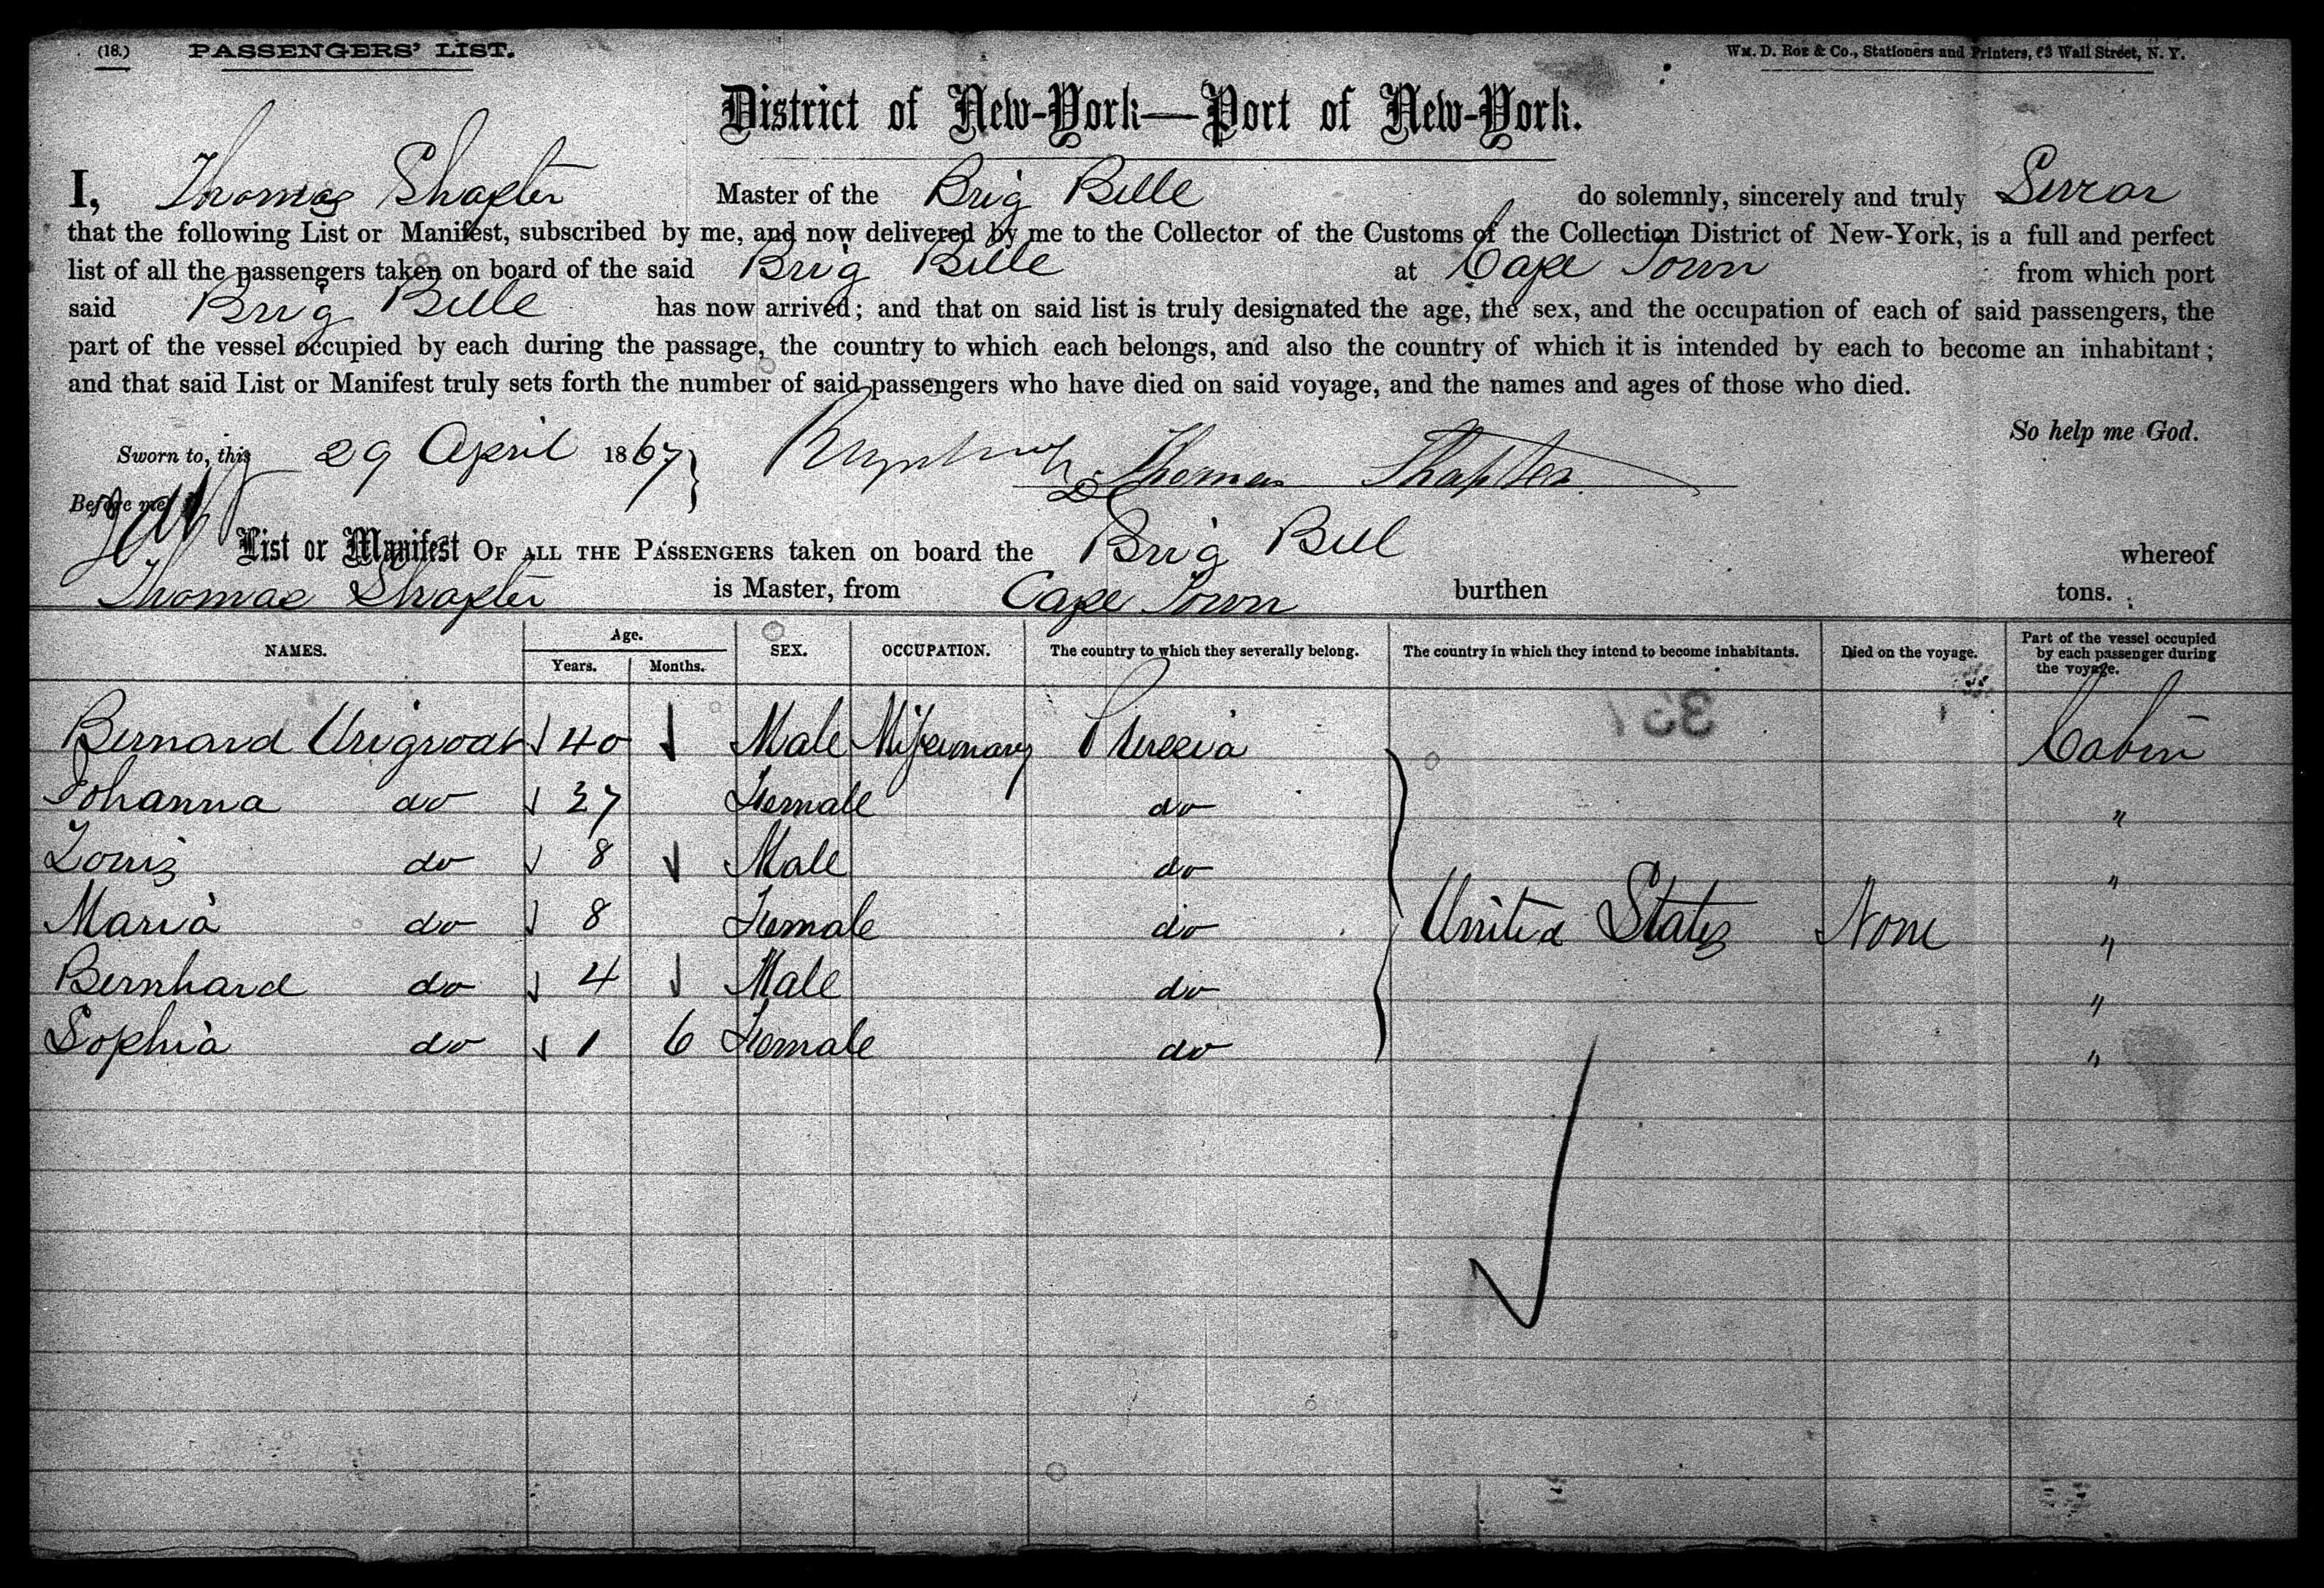 (18.) PASSENGERS' LIST. Wm. D. Roe & Co., Stationers and Printers, 63 Wall Street, N. Y.
District of New-York—Port of New-York.
I, Thomas Shapter Master of the Brig Belle do solemnly, sincerely and truly Swear
that the following List or Manifest, subscribed by me, and now delivered by me to the Collector of the Customs of the Collection District of New-York, is a full and perfect
list of all the passengers taken on board of the said Brig Belle at Cape Town from which port
said Brig Belle has now arrived; and that on said list is truly designated the age, the sex, and the occupation of each of said passengers, the
part of the vessel occupied by each during the passage, the country to which each belongs, and also the country of which it is intended by each to become an inhabitant;
and that said List or Manifest truly sets forth the number of said passengers who have died on said voyage, and the names and ages of those who died.
So help me God.
Sworn to, this 29 April 1867 Thomas Shapter
Before me
List or Manifest OF ALL THE PASSENGERS taken on board the Brig Bell whereof
Thomas Shapter is Master, from Cape Town burthen tons.
NAMES. Age. Years. Months. SEX. OCCUPATION. The country to which they severally belong. The country in which they intend to become inhabitants. Died on the voyage. Part of the vessel occupied by each passenger during the voyage.
337
Bernard 40 Male Missionary Prussia Cabin
Johanna do 37 Female do "
Louis do 8 Male do "
Maria do 8 Female do United States None "
Bernhard do 4 Male do "
Sophia do 1 6 Female do "